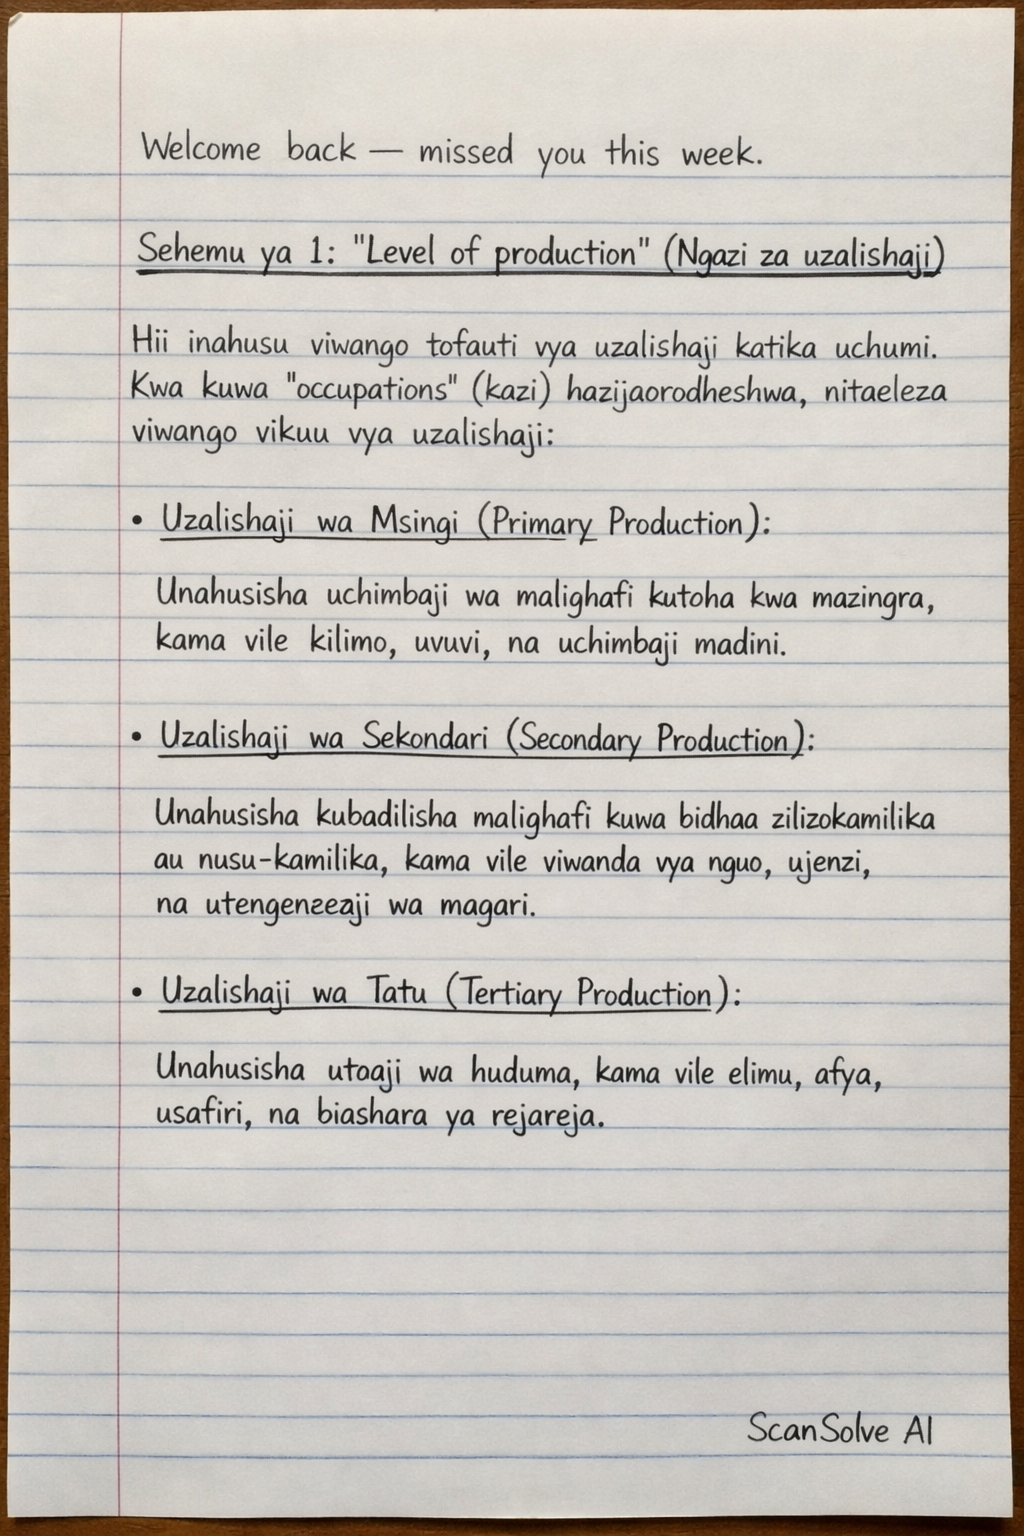 Welcome back — missed you this week.
Sehemu ya 1: "Level of production" (Ngazi za uzalishaji)
Hii inahusu viwango tofauti vya uzalishaji katika uchumi.
Kwa kuwa "occupations" (kazi) hazijaorodheshwa, nitaeleza
viwango vikuu vya uzalishaji:
• Uzalishaji wa Msingi (Primary Production):
Unahusisha uchimbaji wa malighafi kutoha kwa mazingra,
kama vile kilimo, uvuvi, na uchimbaji madini.
• Uzalishaji wa Sekondari (Secondary Production):
Unahusisha kubadilisha malighafi kuwa bidhaa zilizokamilika
au nusu-kamilika, kama vile viwanda vya nguo, ujenzi,
na utengenezeaji wa magari.
• Uzalishaji wa Tatu (Tertiary Production):
Unahusisha utoaji wa huduma, kama vile elimu, afya,
usafiri, na biashara ya rejareja.
ScanSolve AI